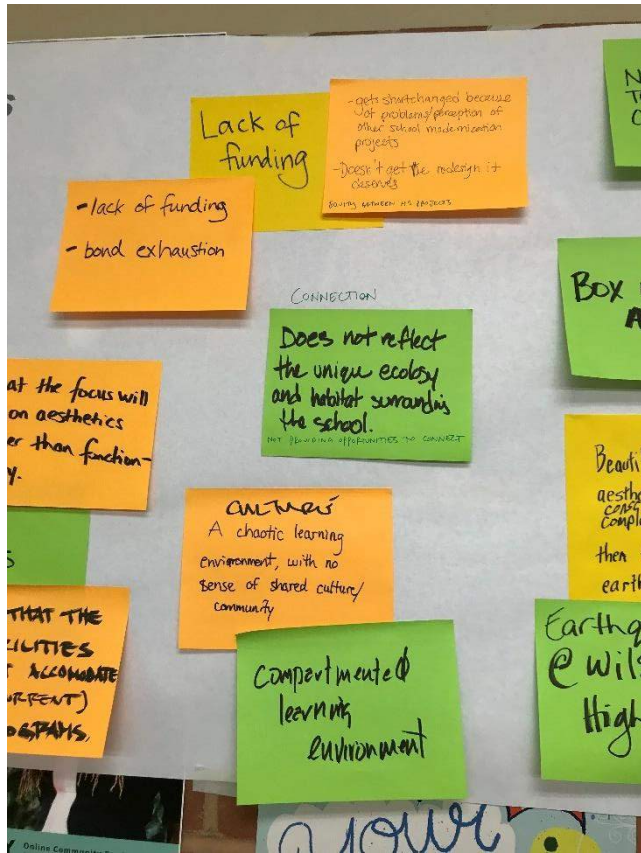 S
Lack of
funding
-gets shortchanged because
of problems/perception of
other school modernization
projects
-Doesn't get the redesign it
deserves
EQUITY BETWEEN HS PROJECTS
N
T
C
-lack of funding
- bond exhaustion
CONNECTION
Does not reflect
the unique ecology
and habitat surrounding
the school.
NOT PROVIDING OPPORTUNITIES TO CONNECT
Box
A
at the focus will
on aesthetics
er than function-
y.
Beauti
aesthe
comple
then
earth
S
CULTURE
A chaotic learning
environment, with no
sense of shared culture/
community
THAT THE
ILITIES
T ACCOMODATE
URRENT)
OGRAMS.
Compartmented
learning
environment
Earthq
@ Wils
High
Y Online Community
your